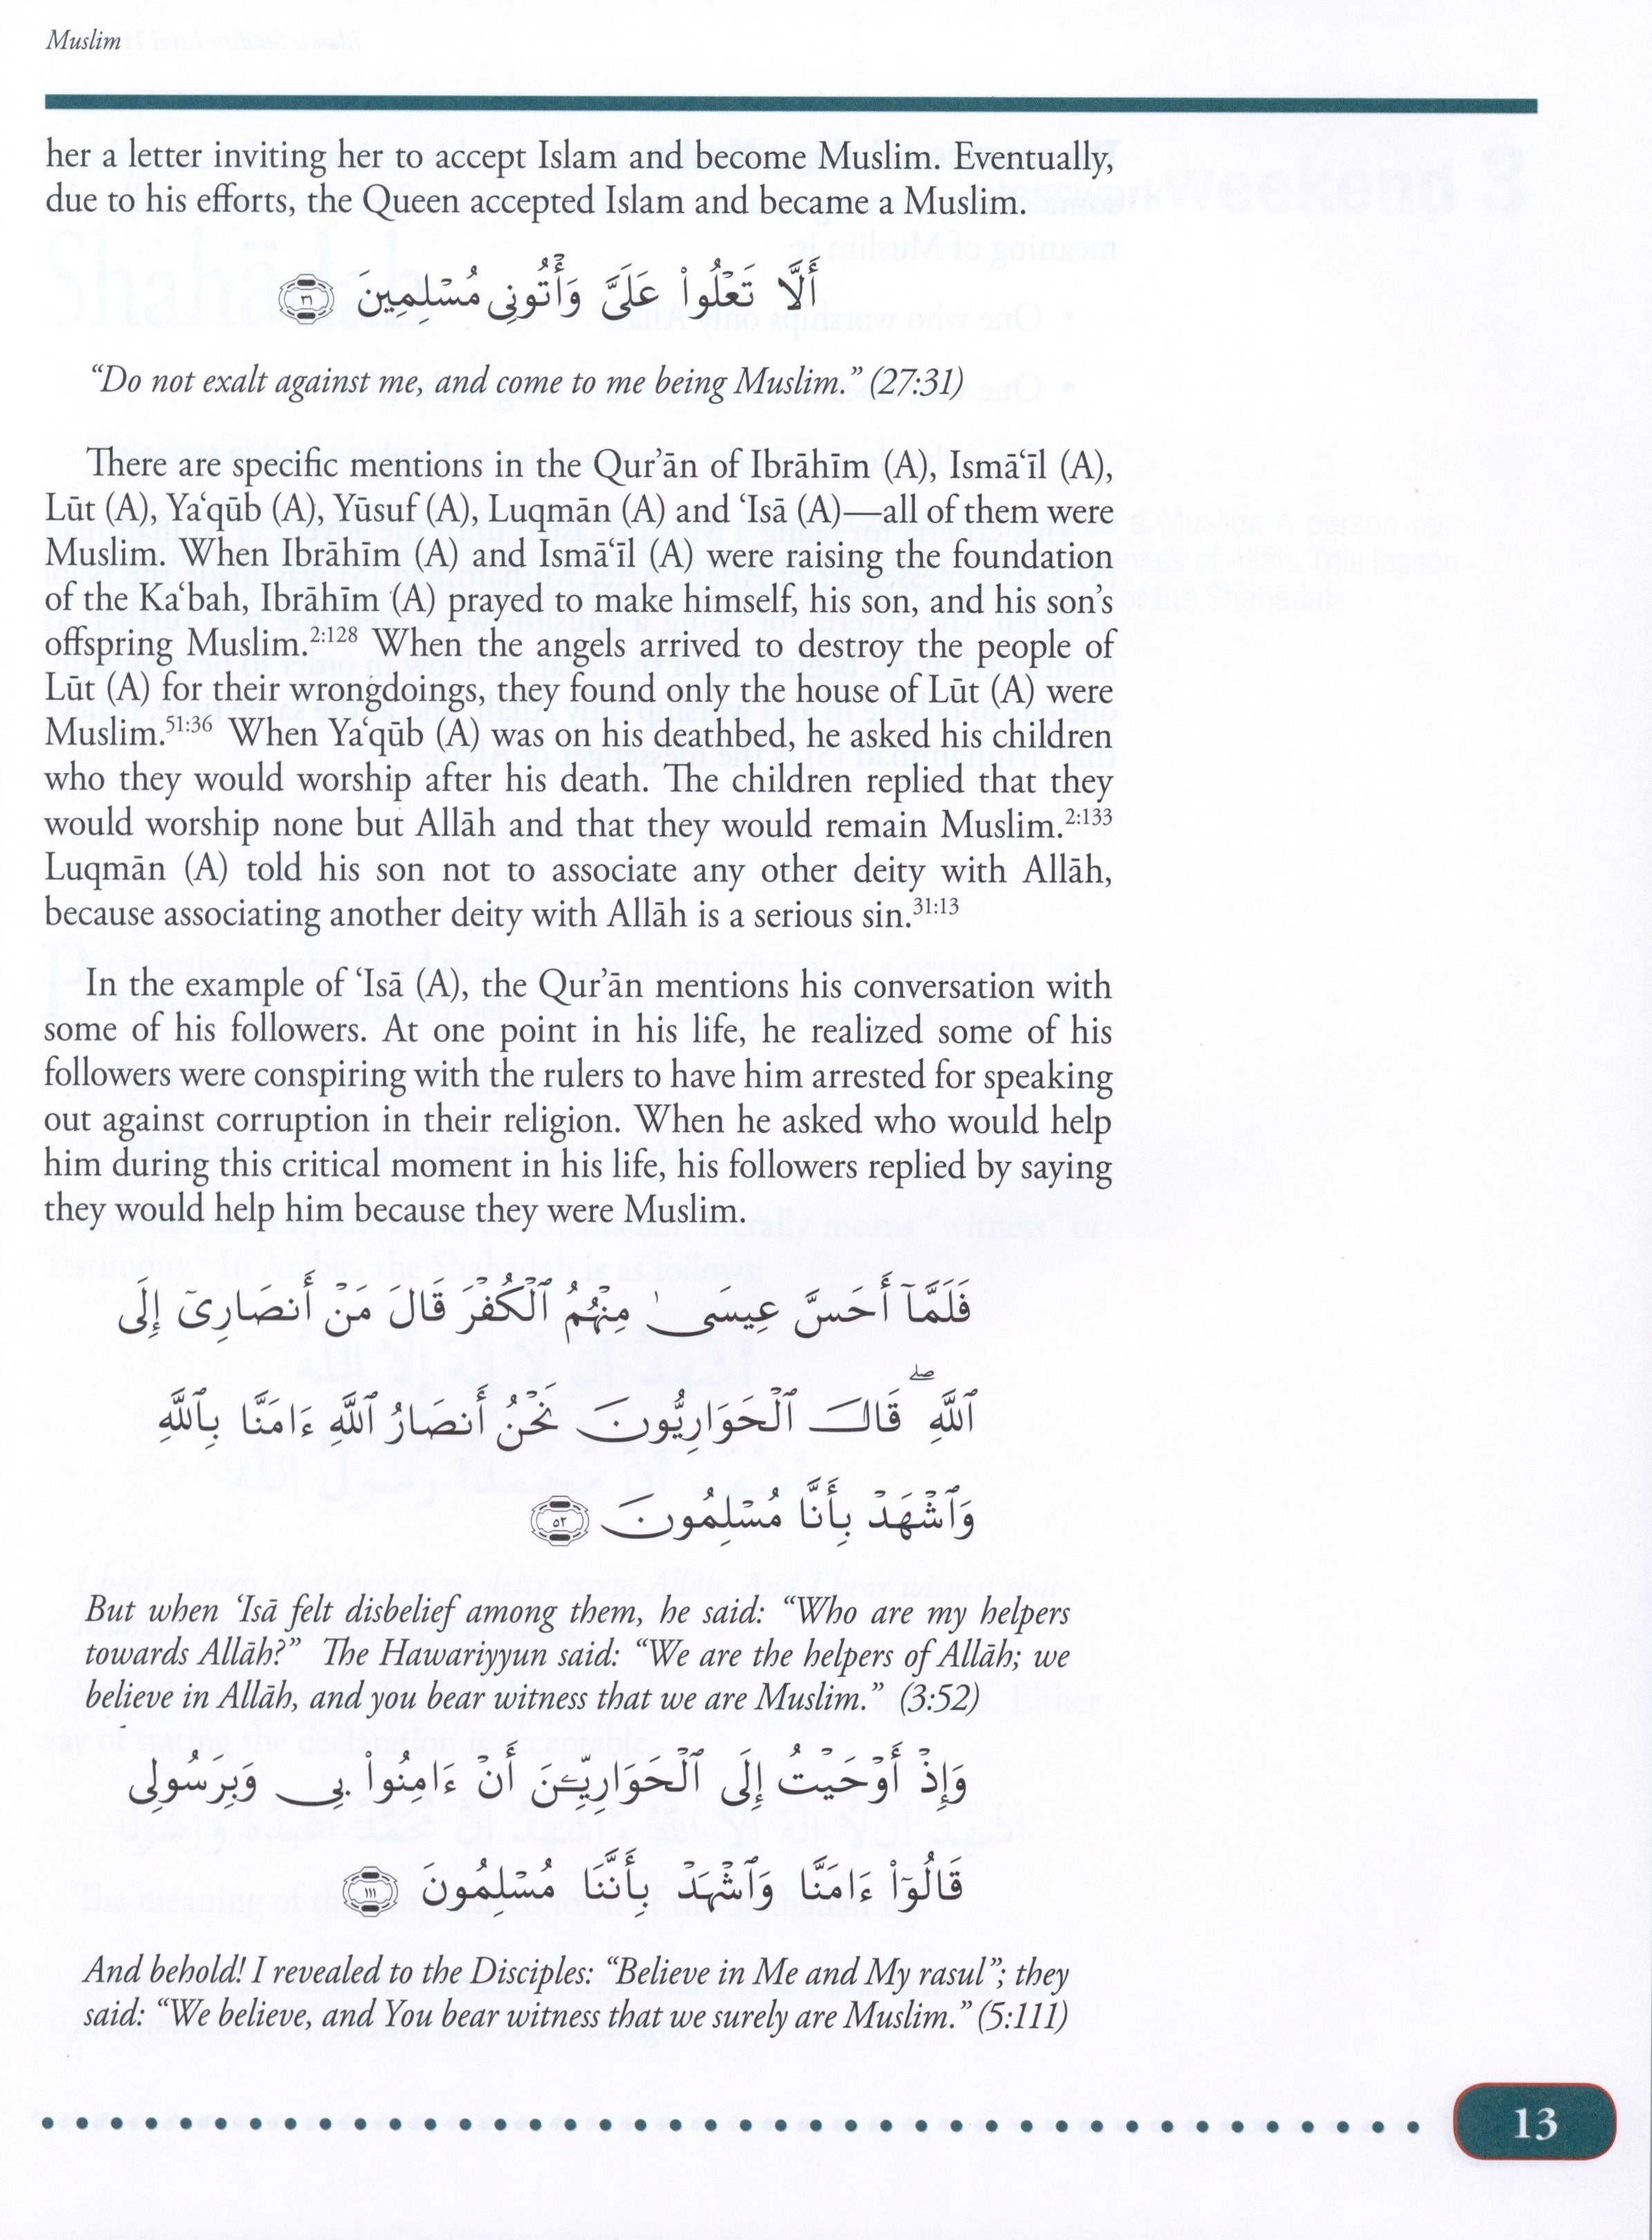 Muslim
her a letter inviting her to accept Islam and become Muslim. Eventually,
due to his efforts, the Queen accepted Islam and became a Muslim.
أَلَّا تَعْلُوا۟ عَلَىَّ وَأْتُونِى مُسْلِمِينَ ٣١
“Do not exalt against me, and come to me being Muslim.” (27:31)
There are specific mentions in the Qur’ān of Ibrāhīm (A), Ismā‘īl (A),
Lūt (A), Ya‘qūb (A), Yūsuf (A), Luqmān (A) and ‘Isā (A)—all of them were
Muslim. When Ibrāhīm (A) and Ismā‘īl (A) were raising the foundation
of the Ka‘bah, Ibrāhīm (A) prayed to make himself, his son, and his son’s
offspring Muslim.2:128 When the angels arrived to destroy the people of
Lūt (A) for their wrongdoings, they found only the house of Lūt (A) were
Muslim.51:36 When Ya‘qūb (A) was on his deathbed, he asked his children
who they would worship after his death. The children replied that they
would worship none but Allāh and that they would remain Muslim.2:133
Luqmān (A) told his son not to associate any other deity with Allāh,
because associating another deity with Allāh is a serious sin.31:13
In the example of ‘Isā (A), the Qur’ān mentions his conversation with
some of his followers. At one point in his life, he realized some of his
followers were conspiring with the rulers to have him arrested for speaking
out against corruption in their religion. When he asked who would help
him during this critical moment in his life, his followers replied by saying
they would help him because they were Muslim.
فَلَمَّآ أَحَسَّ عِيسَىٰ مِنْهُمُ ٱلْكُفْرَ قَالَ مَنْ أَنصَارِىٓ إِلَى
ٱللَّهِ ۖ قَالَ ٱلْحَوَارِيُّونَ نَحْنُ أَنصَارُ ٱللَّهِ ءَامَنَّا بِٱللَّهِ
وَٱشْهَدْ بِأَنَّا مُسْلِمُونَ ٥٢
But when ‘Isā felt disbelief among them, he said: “Who are my helpers
towards Allāh?” The Hawariyyun said: “We are the helpers of Allāh; we
believe in Allāh, and you bear witness that we are Muslim.” (3:52)
وَإِذْ أَوْحَيْتُ إِلَى ٱلْحَوَارِيِّـۧنَ أَنْ ءَامِنُوا۟ بِى وَبِرَسُولِى
قَالُوٓا۟ ءَامَنَّا وَٱشْهَدْ بِأَنَّنَا مُسْلِمُونَ ١١١
And behold! I revealed to the Disciples: “Believe in Me and My rasul”; they
said: “We believe, and You bear witness that we surely are Muslim.” (5:111)
13